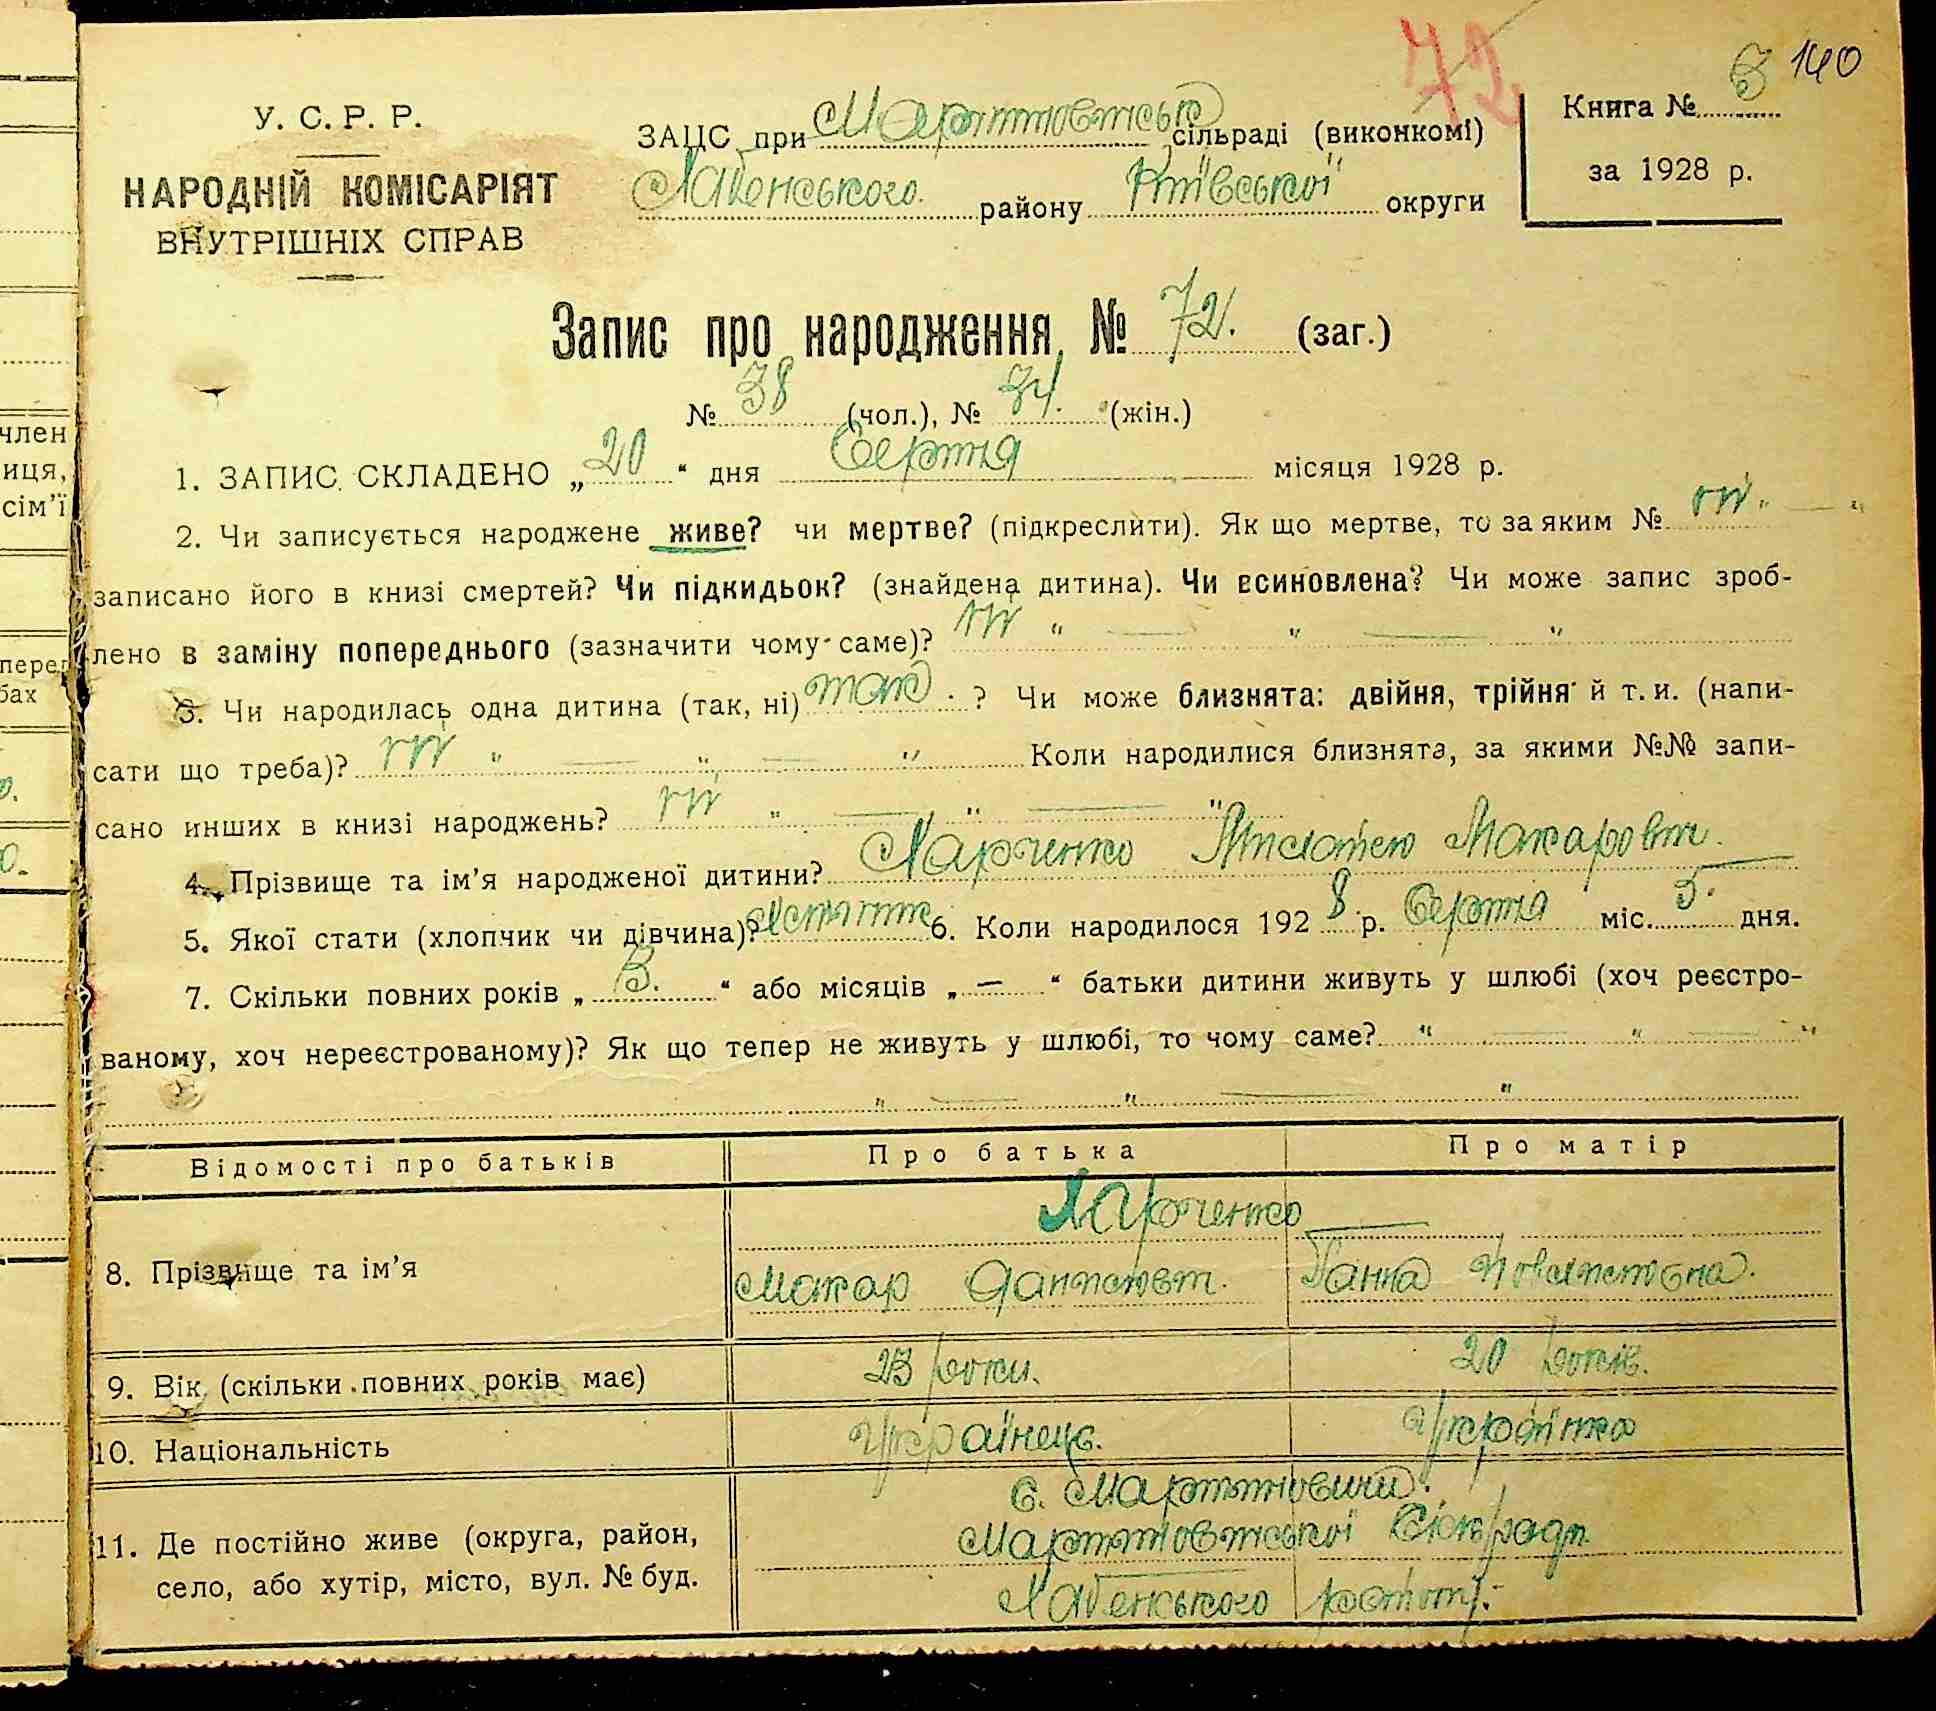 140
72
У. С. Р. Р.
НАРОДНІЙ КОМІСАРІЯТ
ВНУТРІШНІХ СПРАВ
ЗАЦС при Мартиновицьк сільраді (виконкомі)
Хабенського району Київської округи
Книга № 3
за 1928 р.
Запис про народження № 72. (заг.)
№ 38 (чол.), № 34. (жін.)
1. ЗАПИС СКЛАДЕНО „20“ дня Серпня місяця 1928 р.
2. Чи записується народжене живе? чи мертве? (підкреслити). Як що мертве, то за яким № ні "
записано його в книзі смертей? Чи підкидьок? (знайдена дитина). Чи всиновлена? Чи може запис зроб-
лено в заміну попереднього (зазначити чому саме)? ні " — " — "
3. Чи народилась одна дитина (так, ні) так. ? Чи може близнята: двійня, трійня й т. и. (напи-
сати що треба)? ні " — " — " Коли народилися близнята, за якими №№ запи-
сано инших в книзі народжень? ні " — " — "
4. Прізвище та ім’я народженої дитини? Харченко Макарович.
5. Якої стати (хлопчик чи дівчина)? 6. Коли народилося 1928 р. Серпня міс. 5. дня.
7. Скільки повних років „ 3. “ або місяців „ — “ батьки дитини живуть у шлюбі (хоч реєстро-
ваному, хоч нереєстрованому)? Як що тепер не живуть у шлюбі, то чому саме? " — " — "
" — " — "
Відомості про батьків Про батька Про матір
Харченко
8. Прізвище та ім’я Макар Ганна
9. Вік (скільки повних років має) 23 роки. 20 років.
10. Національність Українець. Українка
с. Мартиновичи.
11. Де постійно живе (округа, район, Мартиновицької Сільради
село, або хутір, місто, вул. № буд. Хабенського району.
член
иця,
сім’ї
перед
бах